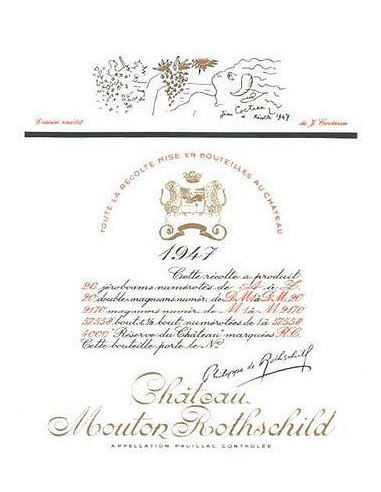 Jean Cocteau
1947
Dessin inédit
de J. Cocteau
TOUTE LA RÉCOLTE MISE EN BOUTEILLES AU CHÂTEAU
1947
Cette récolte a produit
26 jéroboams numérotés de A à Z
20 double-magnums numér. de D.M.1 à D.M. 20
2170 magnums numér. de M.1 à M. 2170
57.558 bout. & ½ bout. numérotées de 1 à 57.558
4000 "Réserve du Château" marquées R.C.
Cette bouteille porte le No
Philippe de Rothschild
Château
Mouton Rothschild
APPELLATION PAUILLAC CONTRÔLÉE